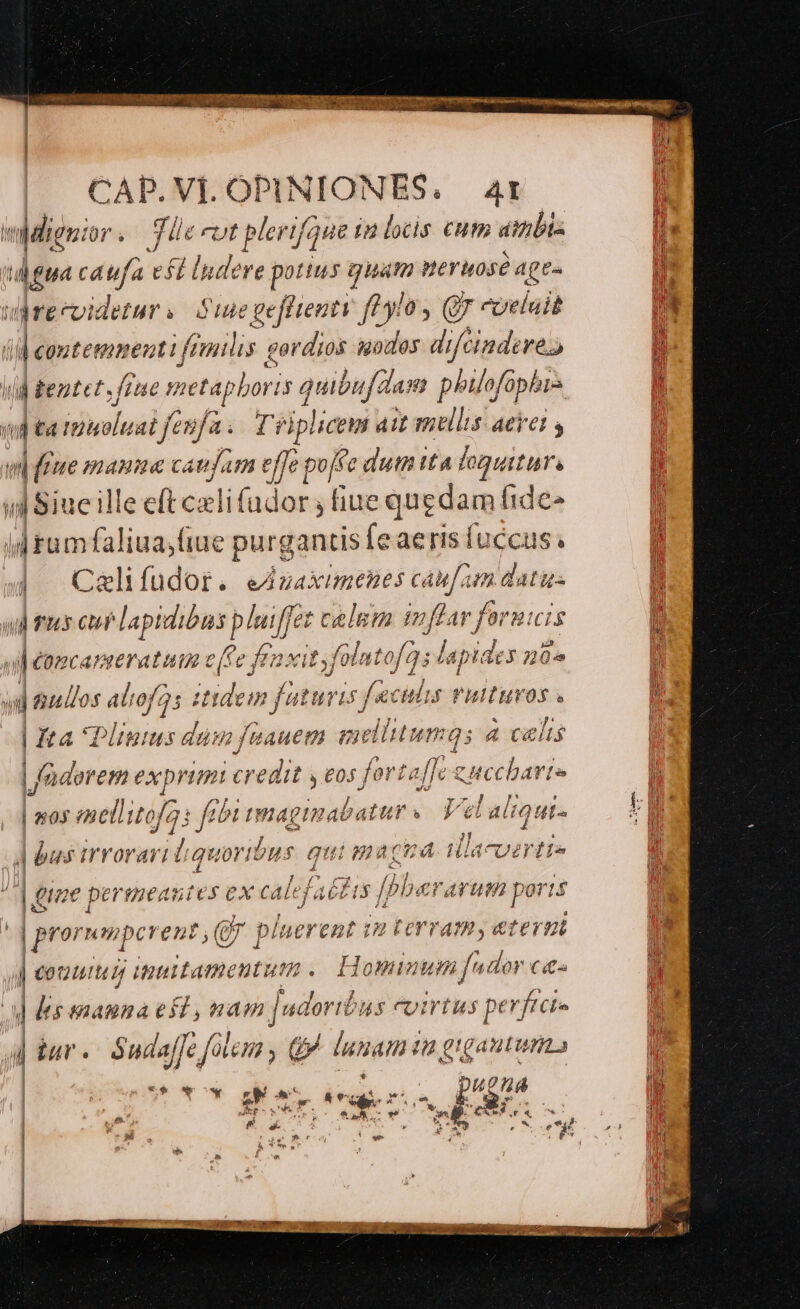 CAP. VI. OPINIONES. 41
dignior. Ille vt plerisque in locis cum ambi-
gua causa est ludere potius quam neruosè age-
re videtur, Siue gestienti stylo, & veluit
contemnenti similis gordios nodos discindere,
tentet, siue metaphoris quibusdam philosophi-
ca inuoluat sensa. Triplicem ait mellis aerei,
siue mannæ causam esse posse dum ita loquitur.
Siue ille est cæli sudor, siue quędam side-
rum saliua, siue purgantis se aeris succus.
Cæli sudor. Anaximenes causam datu-
rus cur lapidibus pluisset cælum instar fornicis
concameratum esse finxit, solutosq; lapides nõ-
nullos aliosq; itidem futuris sæculis ruituros.
Ita Plinius dum suauem mellitumq; à cælis
sudorem exprimi credit, eos fortasse zaccharis
nos mellitosq; sibi imaginabatur. Vel aliqui-
bus irrorari liquoribus qui magna illa verti-
gine permeantes ex calefactis sphærarum poris
prorumperent, & pluerent in terram, æterni
conuiuij inuitamentum. Hominum sudor cæ-
lis manna est, nam sudoribus virtus perfici-
tur. Sudasse solem, & lunam in gigantum
pugna